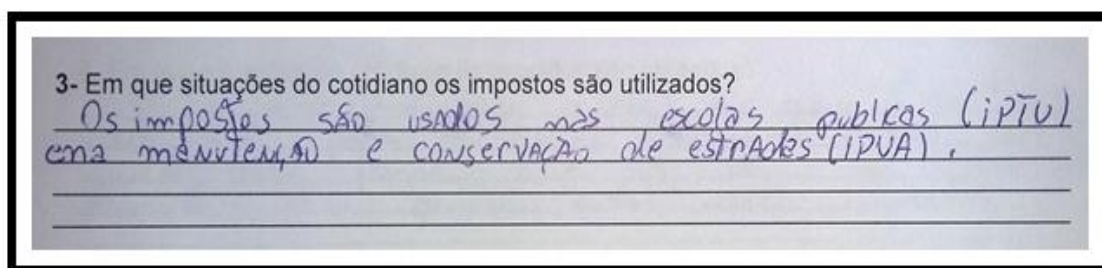 3- Em que situações do cotidiano os impostos são utilizados?
Os impostos são usados nas escolas publicas (iPTU)
e na manutenção e conservação de estradas (IPVA).